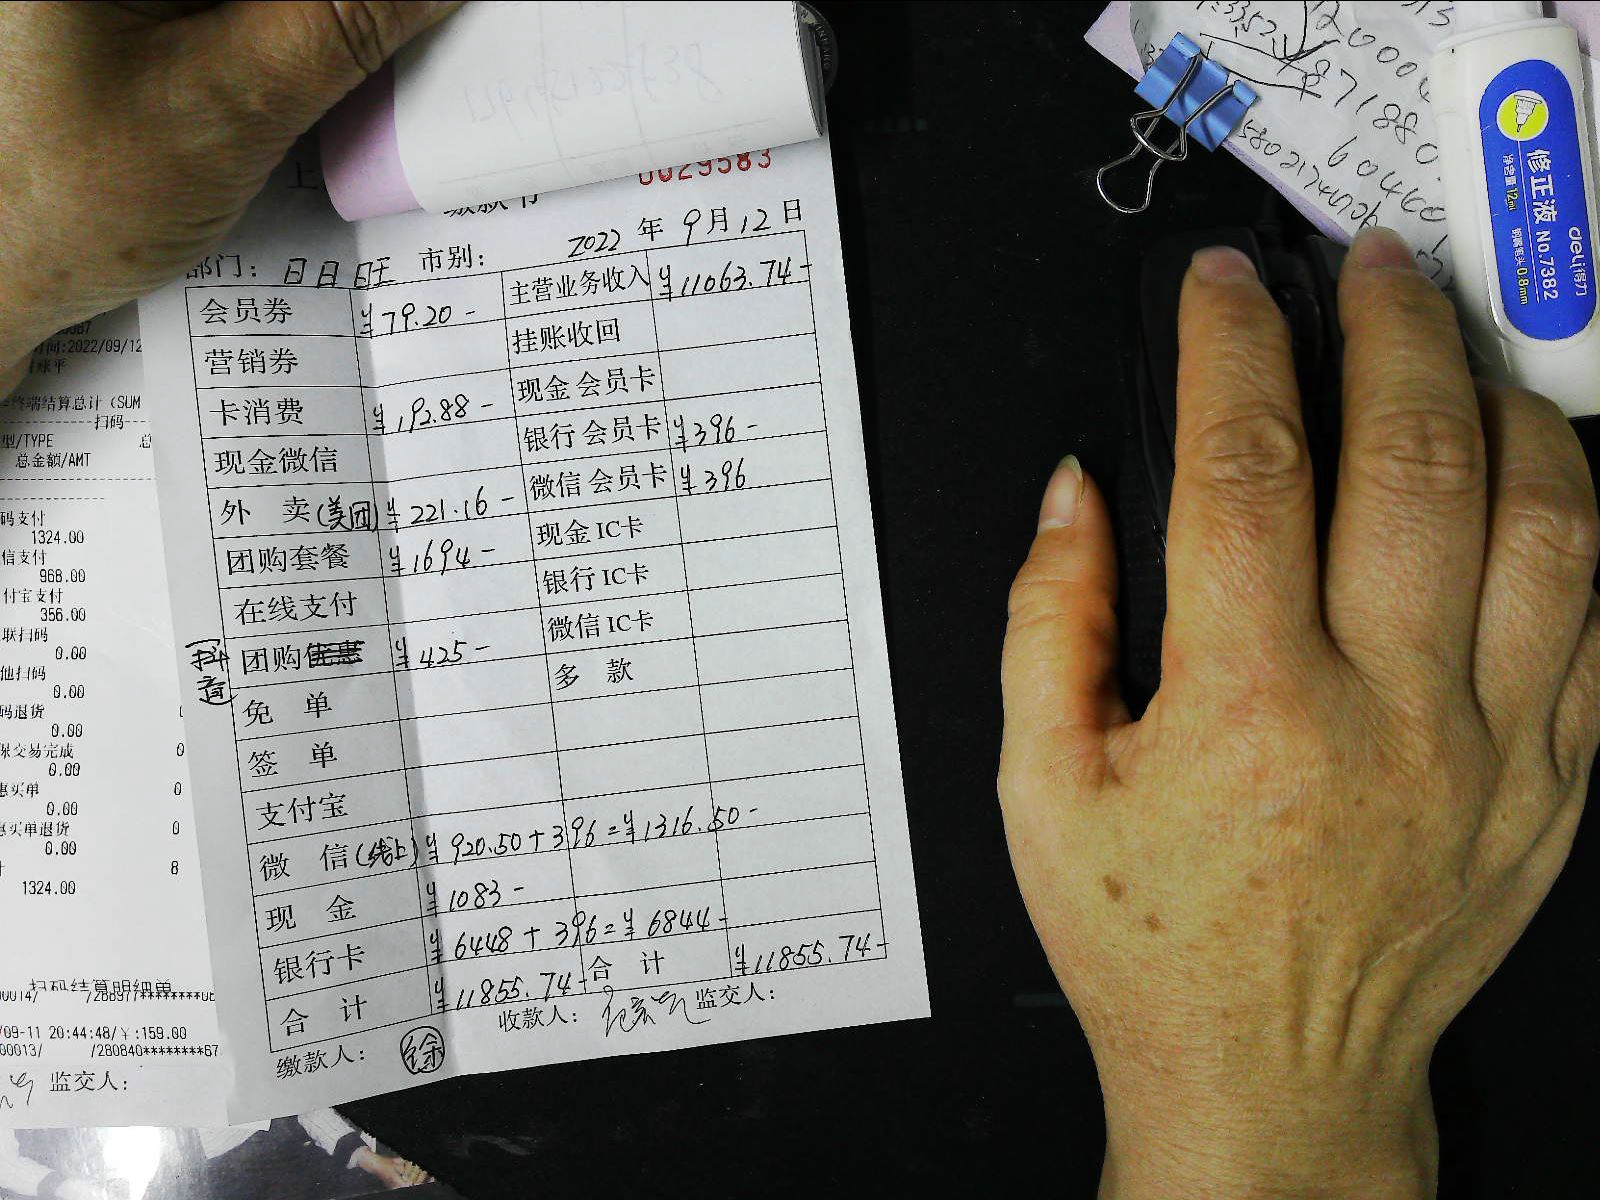 0029583
缴款书
2022 年 9 月 12 日
部门： 日日旺 市别：
会员券 ¥79.20- 主营业务收入 ¥11063.74-
营销券 挂账收回
卡消费 ¥192.88- 现金会员卡
现金微信 银行会员卡 ¥396-
外 卖(美团) ¥221.16- 微信会员卡 ¥396
团购套餐 ¥1694- 现金IC卡
在线支付 银行IC卡
抖音 团购优惠 ¥425- 微信IC卡
免 单 多 款
签 单
支付宝
微 信(线上) ¥920.50+396=¥1316.50-
现 金 ¥1083-
银行卡 ¥6448+396=¥6844-
合 计 ¥11855.74- 合 计 ¥11855.74-
缴款人： 徐 收款人： 监交人：
时间:2022/09/12
终端结算总计 (SUM
扫码
型/TYPE 总
总金额/AMT
码支付
1324.00
信支付
968.00
付宝支付
356.00
联扫码
0.00
他扫码
0.00
码退货
0.00
保交易完成 0
0.00
惠买单 0
0.00
惠买单退货 0
0.00
8
1324.00
扫码结算明细单
/09-11 20:44:48/￥:159.00
00013/ /280840********67
监交人：
deli得力
修正液 No.7382
净含量12ml
钢嘴笔头 0.8mm